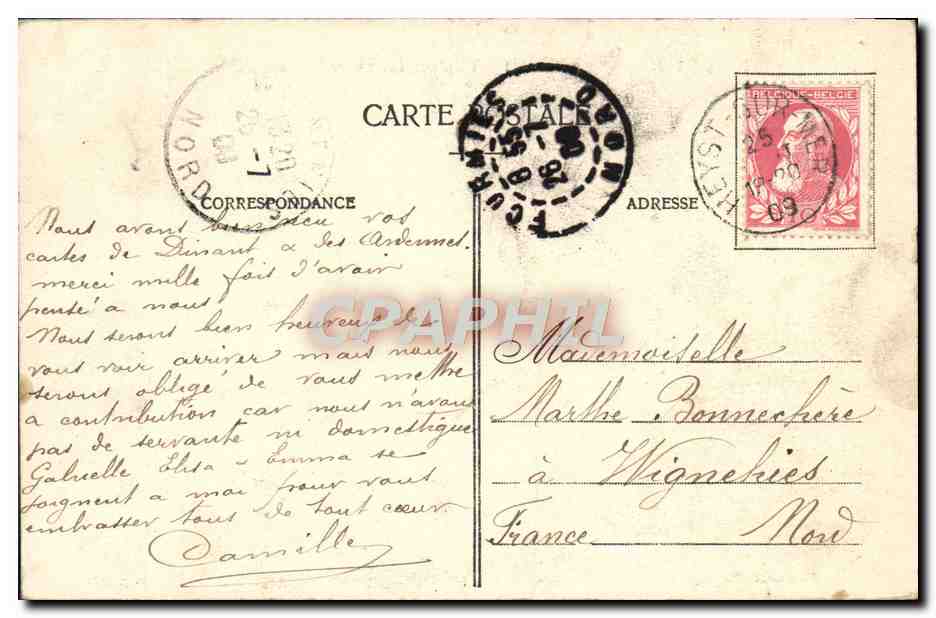 CARTE POSTALE
CORRESPONDANCE
ADRESSE
BELGIQUE-BELGIE
HEYST-SUR-MER
25
18-20
09
FOURMIES
NORD
8 55
26 -7
09
NORD
26 -7
09
CPAPHIL
Nous avons bien reçu vos
cartes de Dinant & des Ardennes.
merci mille fois d'avoir
pensé a nous
Nous serons bien heureux de
vous voir arriver mais nous
serons obligé de vous mettre
a contribution car nous n'avons
pas de servante ni domestique
Gabrielle Elisa - Emma se
joignent a moi pour vous
embrasser tous de tout cœur.
Camille
Mademoiselle
Marthe Bonnechère
à Wignehies
France Nord